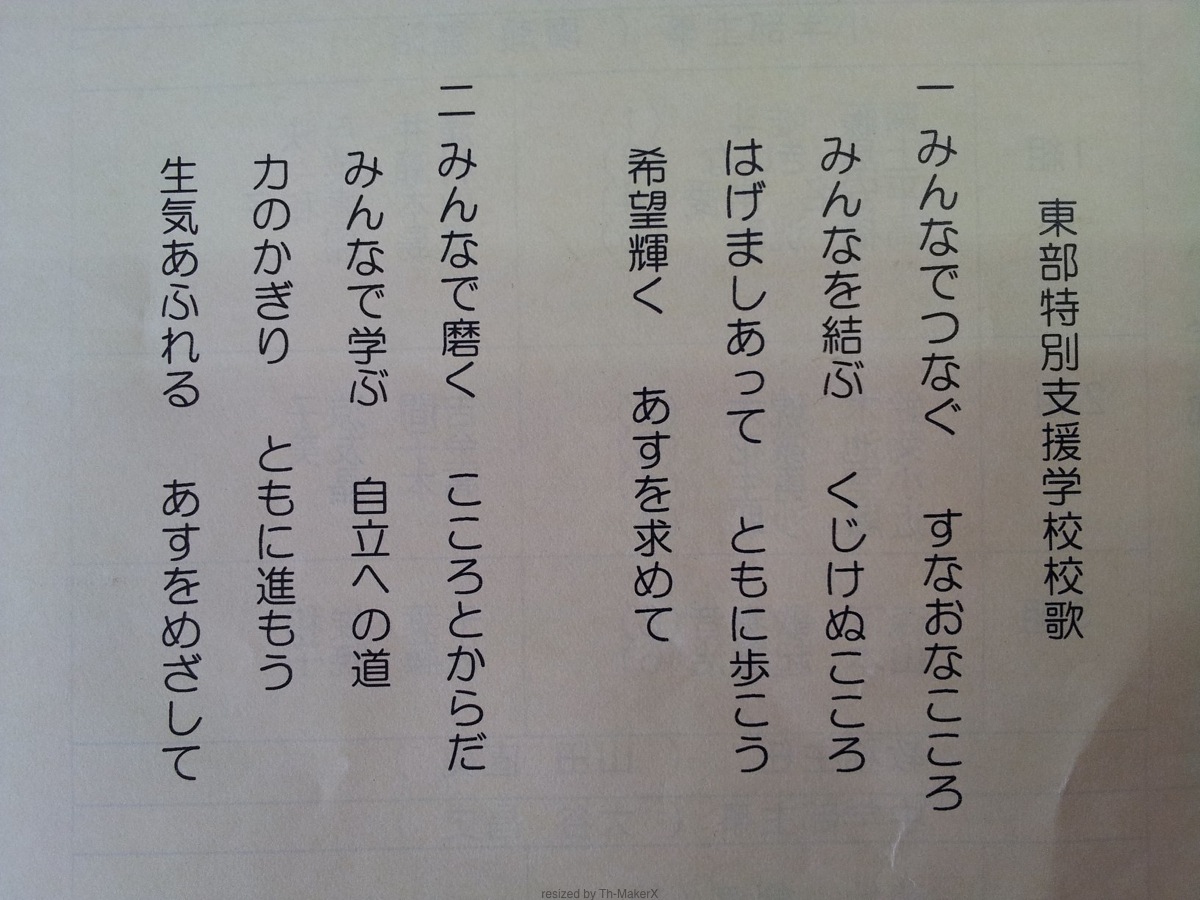 東部特別支援学校校歌
一 みんなでつなぐ すなおなこころ
みんなを結ぶ くじけぬこころ
はげましあって ともに歩こう
希望輝く あすを求めて
二 みんなで磨く こころとからだ
みんなで学ぶ 自立への道
力のかぎり ともに進もう
生気あふれる あすをめざして
resized by Th-MakerX